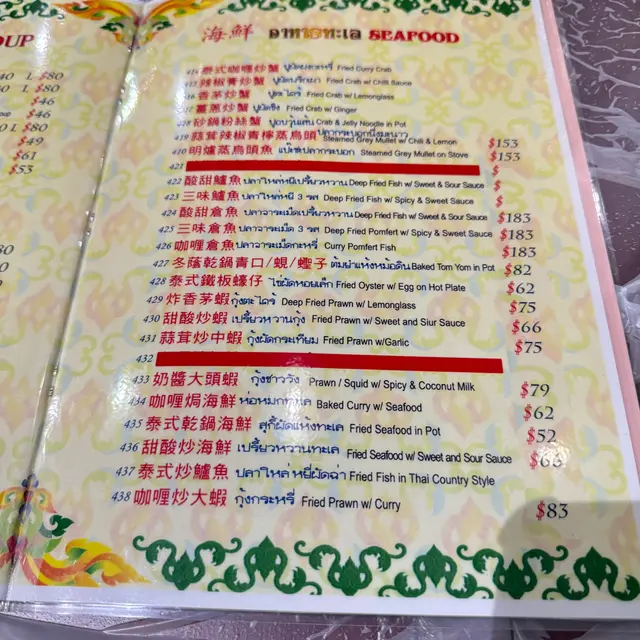 OUP
40 L $80
0 L $80
$46
$46
0 L $80
$49
$61
$53
海鮮 อาหารทะเล SEAFOOD
414 泰式咖喱炒蟹 ปูผัดผงกะหรี่ Fried Curry Crab
415 辣椒膏炒蟹 ปูผัดพริกเผา Fried Crab w/ Chilli Sauce
416 香茅炒蟹 ปูตะไคร้ Fried Crab w/ Lemonglass
417 薑蔥炒蟹 ปูผัดขิง Fried Crab w/ Ginger
418 砂鍋粉絲蟹 ปูอบวุ้นเส้น Crab & Jelly Noodle in Pot
419 蒜茸辣椒青檸蒸烏頭 ปลากระบอกนึ่งมะนาว Steamed Grey Mullet w/ Chili & Lemon $153
410 明爐蒸烏頭魚 แป๊ะซะปลากระบอก Steamed Grey Mullet on Stove $153
421 $
422 酸甜鱸魚 ปลาใหล่หยีเปรี้ยวหวาน Deep Fried Fish w/ Sweet & Sour Sauce $
423 三味鱸魚 ปลาใหล่หยี 3 รส Deep Fried Fish w/ Spicy & Sweet Sauce $
424 酸甜倉魚 ปลาจาระเม็ดเปรี้ยวหวาน Deep Fried Fish w/ Sweet & Sour Sauce $183
425 三味倉魚 ปลาจาระเม็ด 3 รส Deep Fried Pomfert w/ Spicy & Sweet Sauce $183
426 咖喱倉魚 ปลาจาระเม็ดกะหรี่ Curry Pomfert Fish $183
427 冬蔭乾鍋青口/蜆/蟶子 ต้มยำแห้งหม้อดิน Baked Tom Yom in Pot $82
428 泰式鐵板蠔仔 ไข่ผัดหอยเล็ก Fried Oyster w/ Egg on Hot Plate $62
429 炸香茅蝦 กุ้งตะไคร้ Deep Fried Prawn w/ Lemonglass $75
430 甜酸炒蝦 เปรี้ยวหวานกุ้ง Fried Prawn w/ Sweet and Siur Sauce $66
431 蒜茸炒中蝦 กุ้งผัดกระเทียม Fried Prawn w/Garlic $75
432
433 奶醬大頭蝦 กุ้งชาววัง Prawn / Squid w/ Spicy & Coconut Milk $79
434 咖喱焗海鮮 ห่อหมกทะเล Baked Curry w/ Seafood $62
435 泰式乾鍋海鮮 สุกี้ผัดแห้งทะเล Fried Seafood in Pot $52
436 甜酸炒海鮮 เปรี้ยวหวานทะเล Fried Seafood w/ Sweet and Sour Sauce $66
437 泰式炒鱸魚 ปลาใหล่หยีผัดฉ่า Fried Fish in Thai Country Style
438 咖喱炒大蝦 กุ้งกะหรี่ Fried Prawn w/ Curry $83